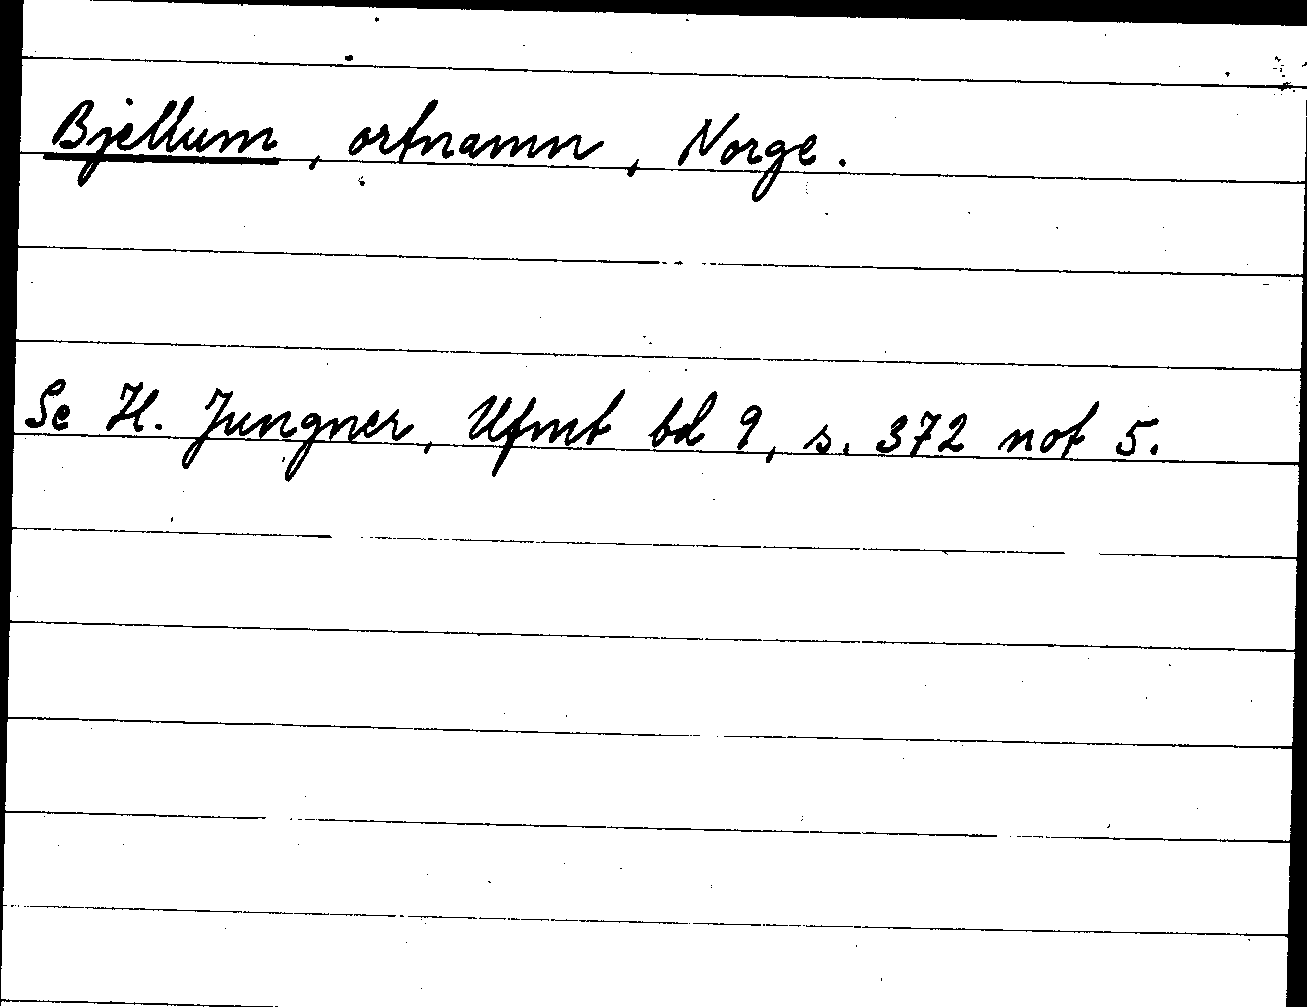 Bjellum, ortnamn, Norge.
Se H. Jungner, Ufmt bd 9, s. 372 not 5.